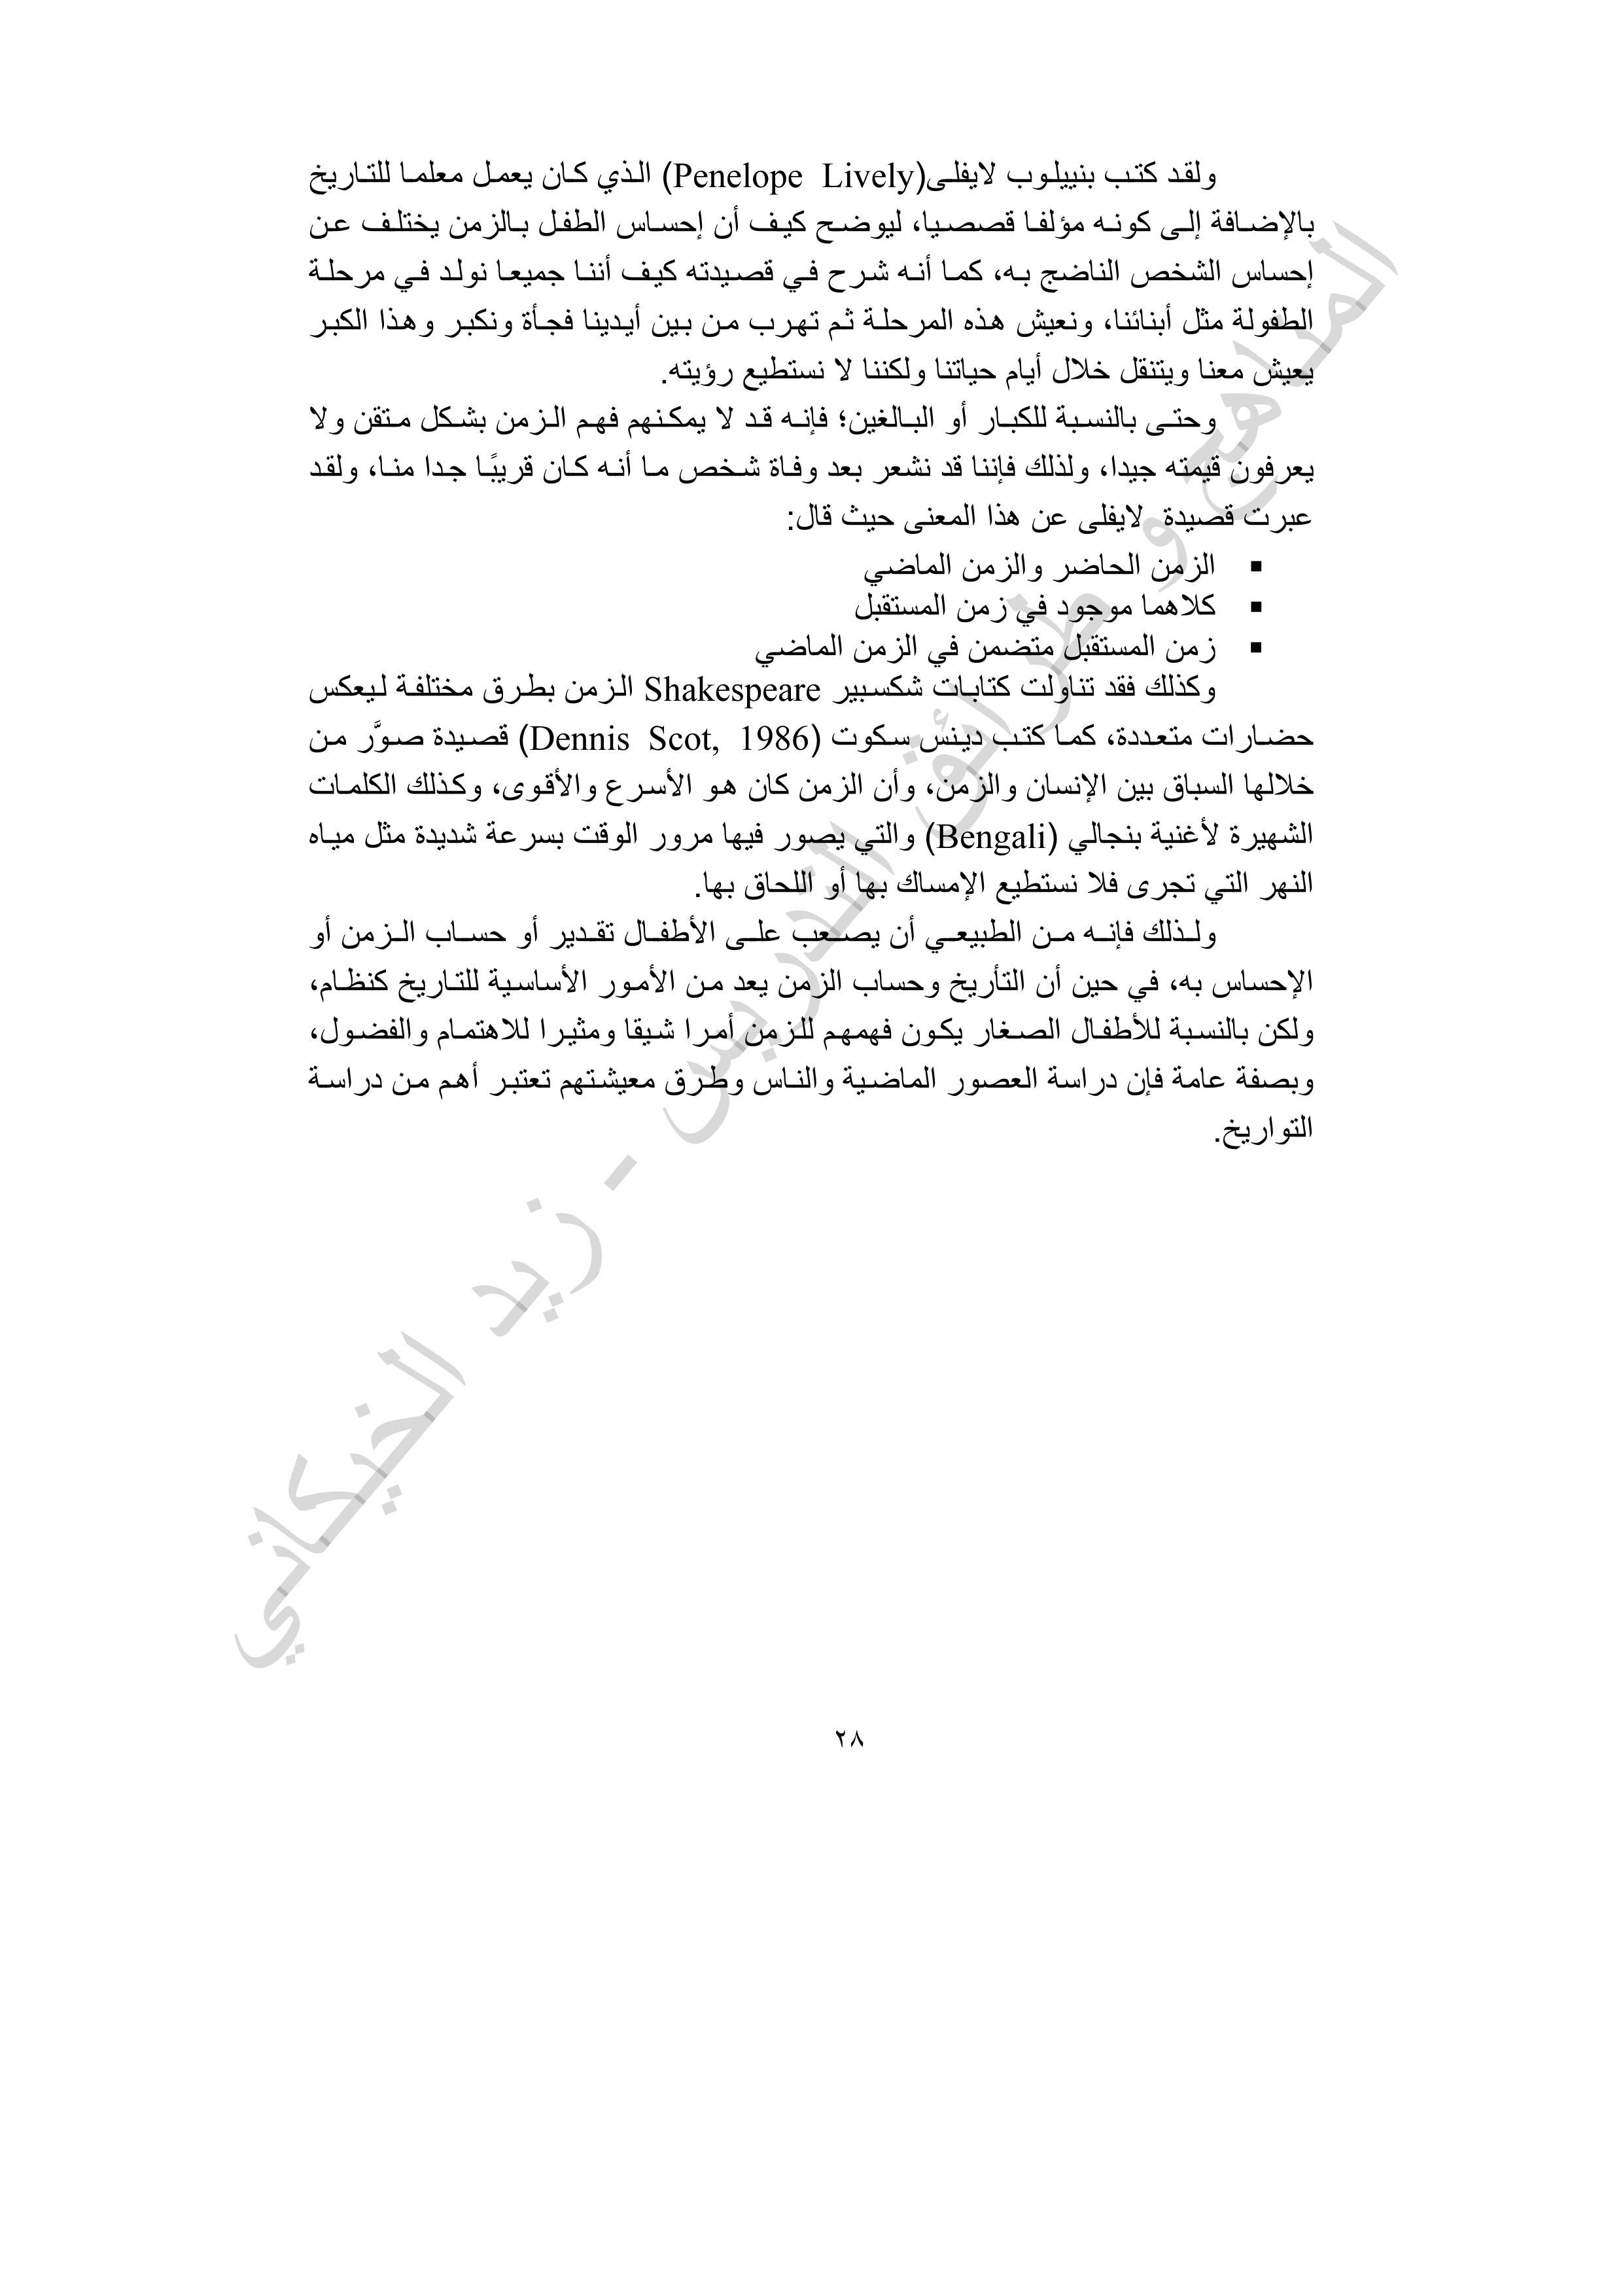 ولقد كتب بنييلوب لايفلى(Penelope Lively) الذي كان يعمل معلما للتاريخ
بالإضافة إلى كونه مؤلفا قصصيا، ليوضح كيف أن إحساس الطفل بالزمن يختلف عن
إحساس الشخص الناضج به، كما أنه شرح في قصيدته كيف أننا جميعا نولد في مرحلة
الطفولة مثل أبنائنا، ونعيش هذه المرحلة ثم تهرب من بين أيدينا فجأة ونكبر وهذا الكبر
يعيش معنا ويتنقل خلال أيام حياتنا ولكننا لا نستطيع رؤيته.
وحتى بالنسبة للكبار أو البالغين؛ فإنه قد لا يمكنهم فهم الزمن بشكل متقن ولا
يعرفون قيمته جيدا، ولذلك فإننا قد نشعر بعد وفاة شخص ما أنه كان قريبًا جدا منا، ولقد
عبرت قصيدة لايفلى عن هذا المعنى حيث قال:
▪ الزمن الحاضر والزمن الماضي
▪ كلاهما موجود في زمن المستقبل
▪ زمن المستقبل متضمن في الزمن الماضي
وكذلك فقد تناولت كتابات شكسبير Shakespeare الزمن بطرق مختلفة ليعكس
حضارات متعددة، كما كتب دينس سكوت (Dennis Scot, 1986) قصيدة صوَّر من
خلالها السباق بين الإنسان والزمن، وأن الزمن كان هو الأسرع والأقوى، وكذلك الكلمات
الشهيرة لأغنية بنجالي (Bengali) والتي يصور فيها مرور الوقت بسرعة شديدة مثل مياه
النهر التي تجرى فلا نستطيع الإمساك بها أو اللحاق بها.
ولذلك فإنه من الطبيعي أن يصعب على الأطفال تقدير أو حساب الزمن أو
الإحساس به، في حين أن التأريخ وحساب الزمن يعد من الأمور الأساسية للتاريخ كنظام،
ولكن بالنسبة للأطفال الصغار يكون فهمهم للزمن أمرا شيقا ومثيرا للاهتمام والفضول،
وبصفة عامة فإن دراسة العصور الماضية والناس وطرق معيشتهم تعتبر أهم من دراسة
التواريخ.
المناهج و طرائق التدريس - زيد الخيكاني
٢٨